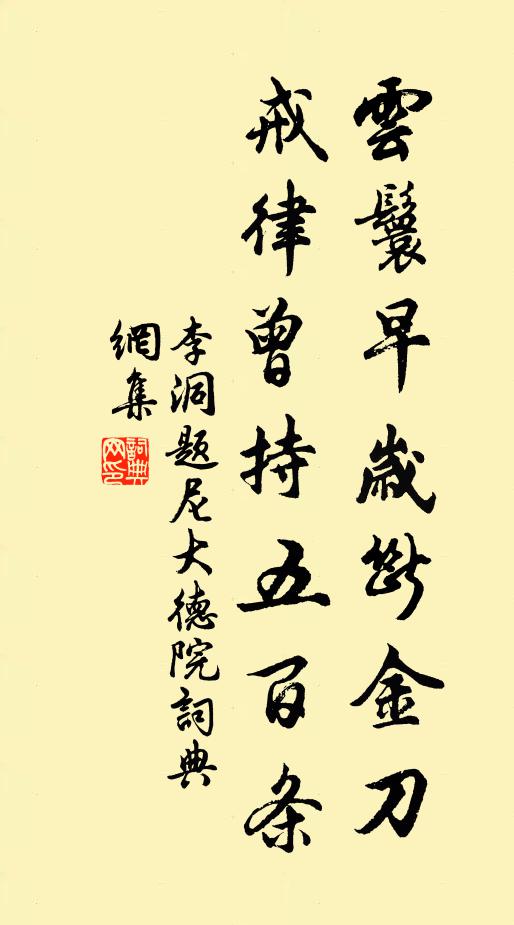 雲鬟早歲斷金刀
戒律曾持五百条
李洞題尼大德院詞典
網集
詞典網印